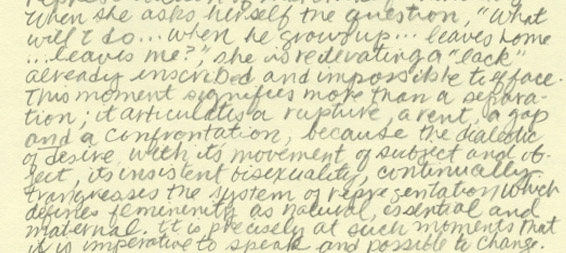 When she asks herself the question, "What
will I do... when he grows up... leaves home
...leaves me?", she is reiterating a "lack"
already inscribed and impossible to efface.
This moment signifies more than a separa-
tion; it articulates a rupture, a rent, a gap
and a confrontation, because the dialectic
of desire, with its movement of subject and ob-
ject, its insistent bisexuality, continually
transgresses the system of representation which
defines femininity as natural, essential and
maternal. It is precisely at such moments that
it is imperative to speak and possible to change.